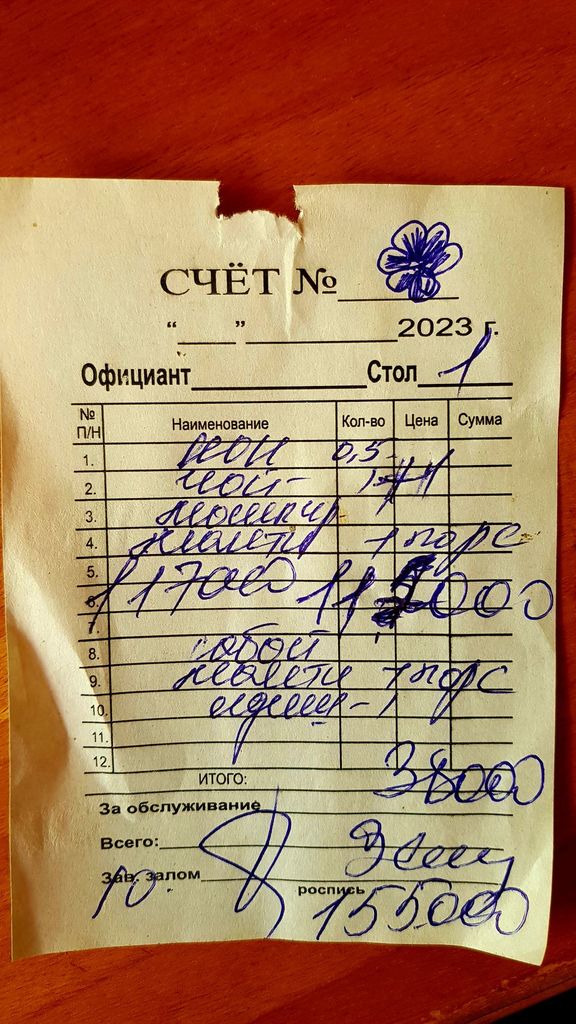 СЧЁТ №
“ ” 2023 г.
Официант Стол 1
№ П/Н Наименование Кол-во Цена Сумма
1. нон 0,5
2. чой-
3.
4. манти 1 порс
5.
6. 117000
7.
8. собой
9. манти 1 порс
10. 1
11.
12.
ИТОГО: 38000
За обслуживание
Всего:
Зав. залом
10. роспись 155000